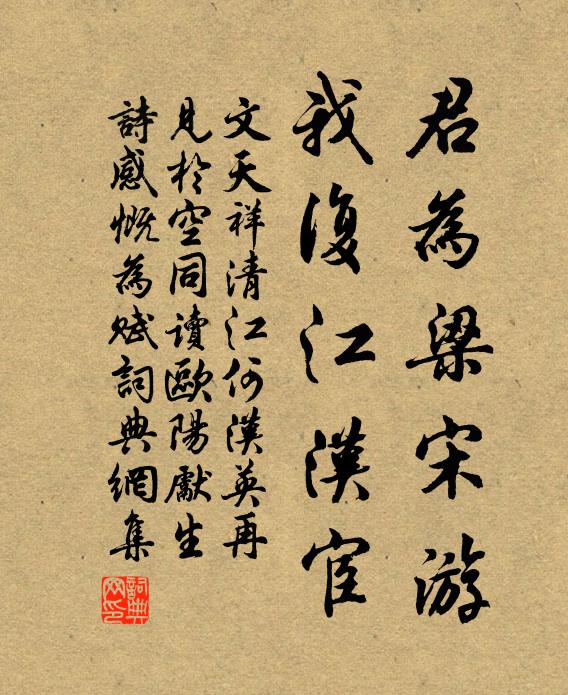 君為梁宋游
我復江漢宦
文天祥清江何漢英再
見於空同讀歐陽獻生
詩感慨為賦詞典網集
詞典網印